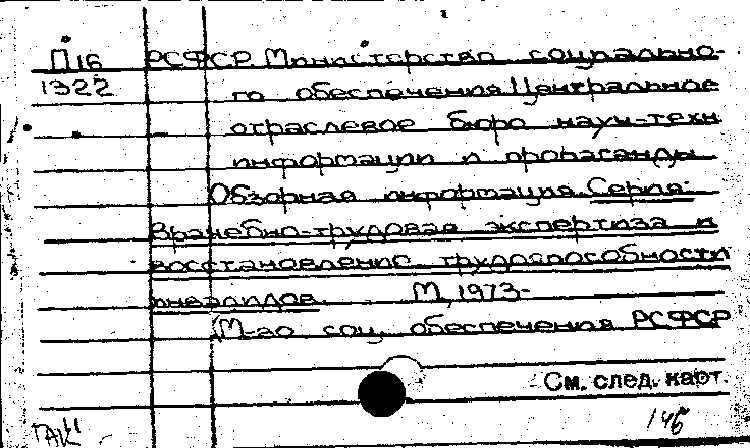 П16 РСФСР Министерство социально-
1322 го обеспечения Центральное
отраслевое бюро науч-техн
информации и пропаганды
Обзорная информация. Серия:
Врачебно-трудовая экспертиза и
восстановление трудоспособности
инвалидов. М, 1973-
(М-во соц. обеспечения РСФСР
См. след. карт.
146